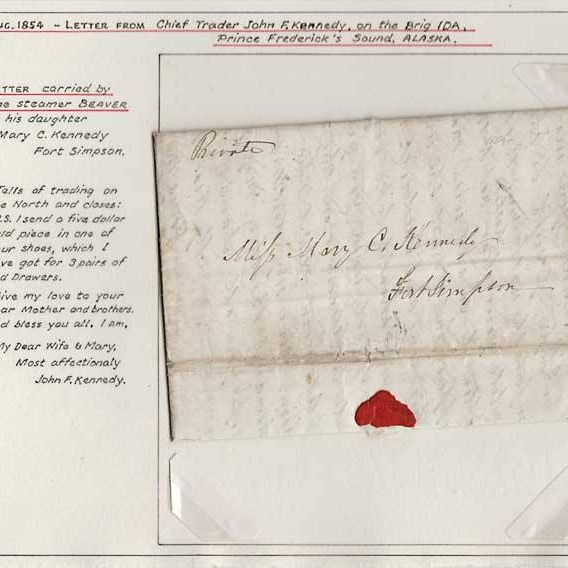 UG. 1854 - LETTER FROM Chief Trader John F. Kennedy, on the Brig IDA,
Prince Frederick's Sound, ALASKA.
ETTER carried by
he steamer BEAVER
his daughter
Mary C. Kennedy
Fort Simpson.
Tells of trading on
e North and closes:
.S. I send a five dollar
old piece in one of
ur shoes, which I
ve got for 3 pairs of
d Drawers.
ive my love to your
ar Mother and brothers.
d bless you all. I am,
My Dear Wife & Mary,
Most affectionaly
John F. Kennedy.
Private
Miss Mary C. Kennedy
Fort Simpson